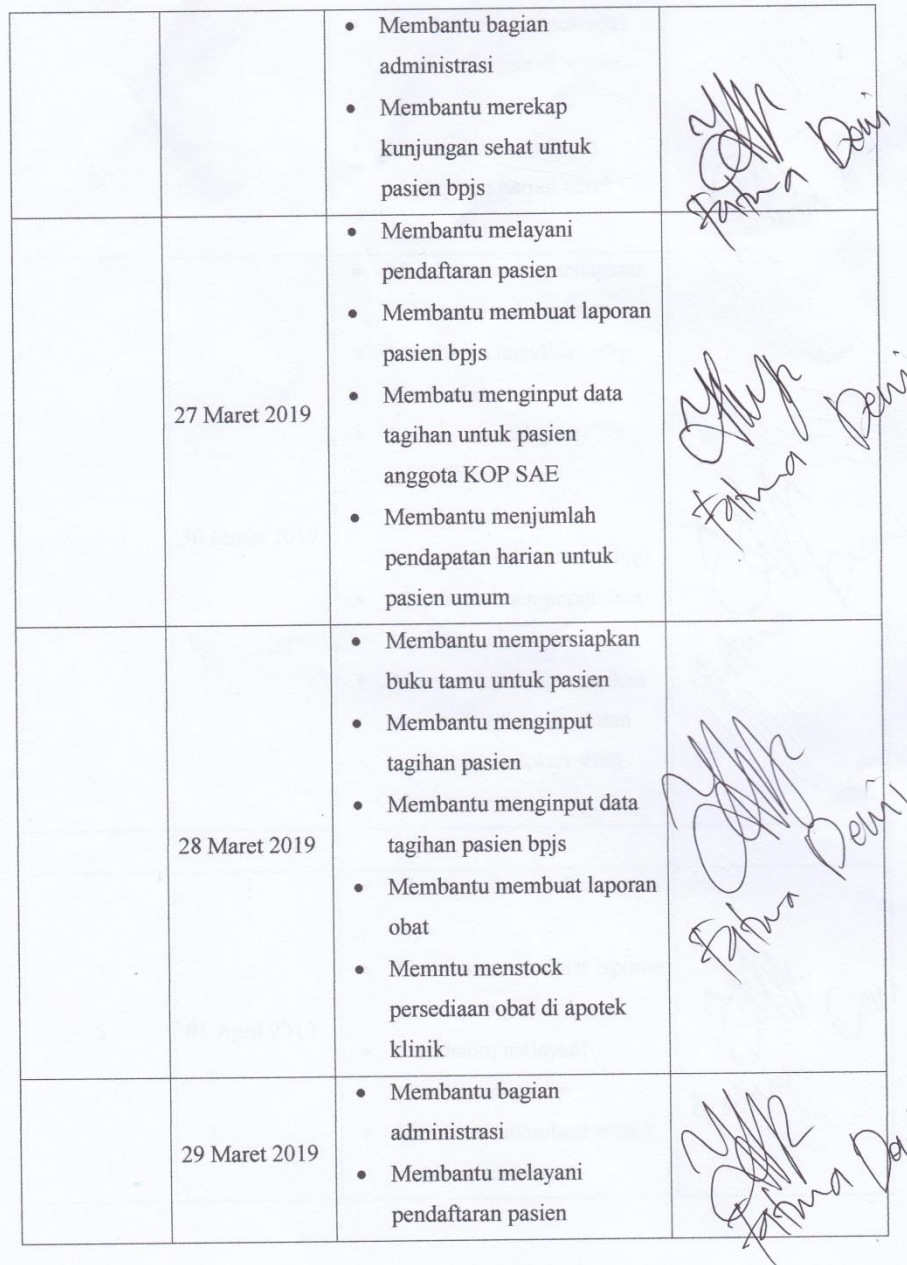 • Membantu bagian
administrasi
• Membantu merekap
kunjungan sehat untuk
pasien bpjs
Fatma Dewi
• Membantu melayani
pendaftaran pasien
• Membantu membuat laporan
pasien bpjs
27 Maret 2019
• Membatu menginput data
tagihan untuk pasien
anggota KOP SAE
• Membantu menjumlah
pendapatan harian untuk
pasien umum
Fatma Dewi
• Membantu mempersiapkan
buku tamu untuk pasien
• Membantu menginput
tagihan pasien
• Membantu menginput data
tagihan pasien bpjs
28 Maret 2019
• Membantu membuat laporan
obat
• Memntu menstock
persediaan obat di apotek
klinik
Fatma Dewi
• Membantu bagian
administrasi
29 Maret 2019
• Membantu melayani
pendaftaran pasien
Fatma